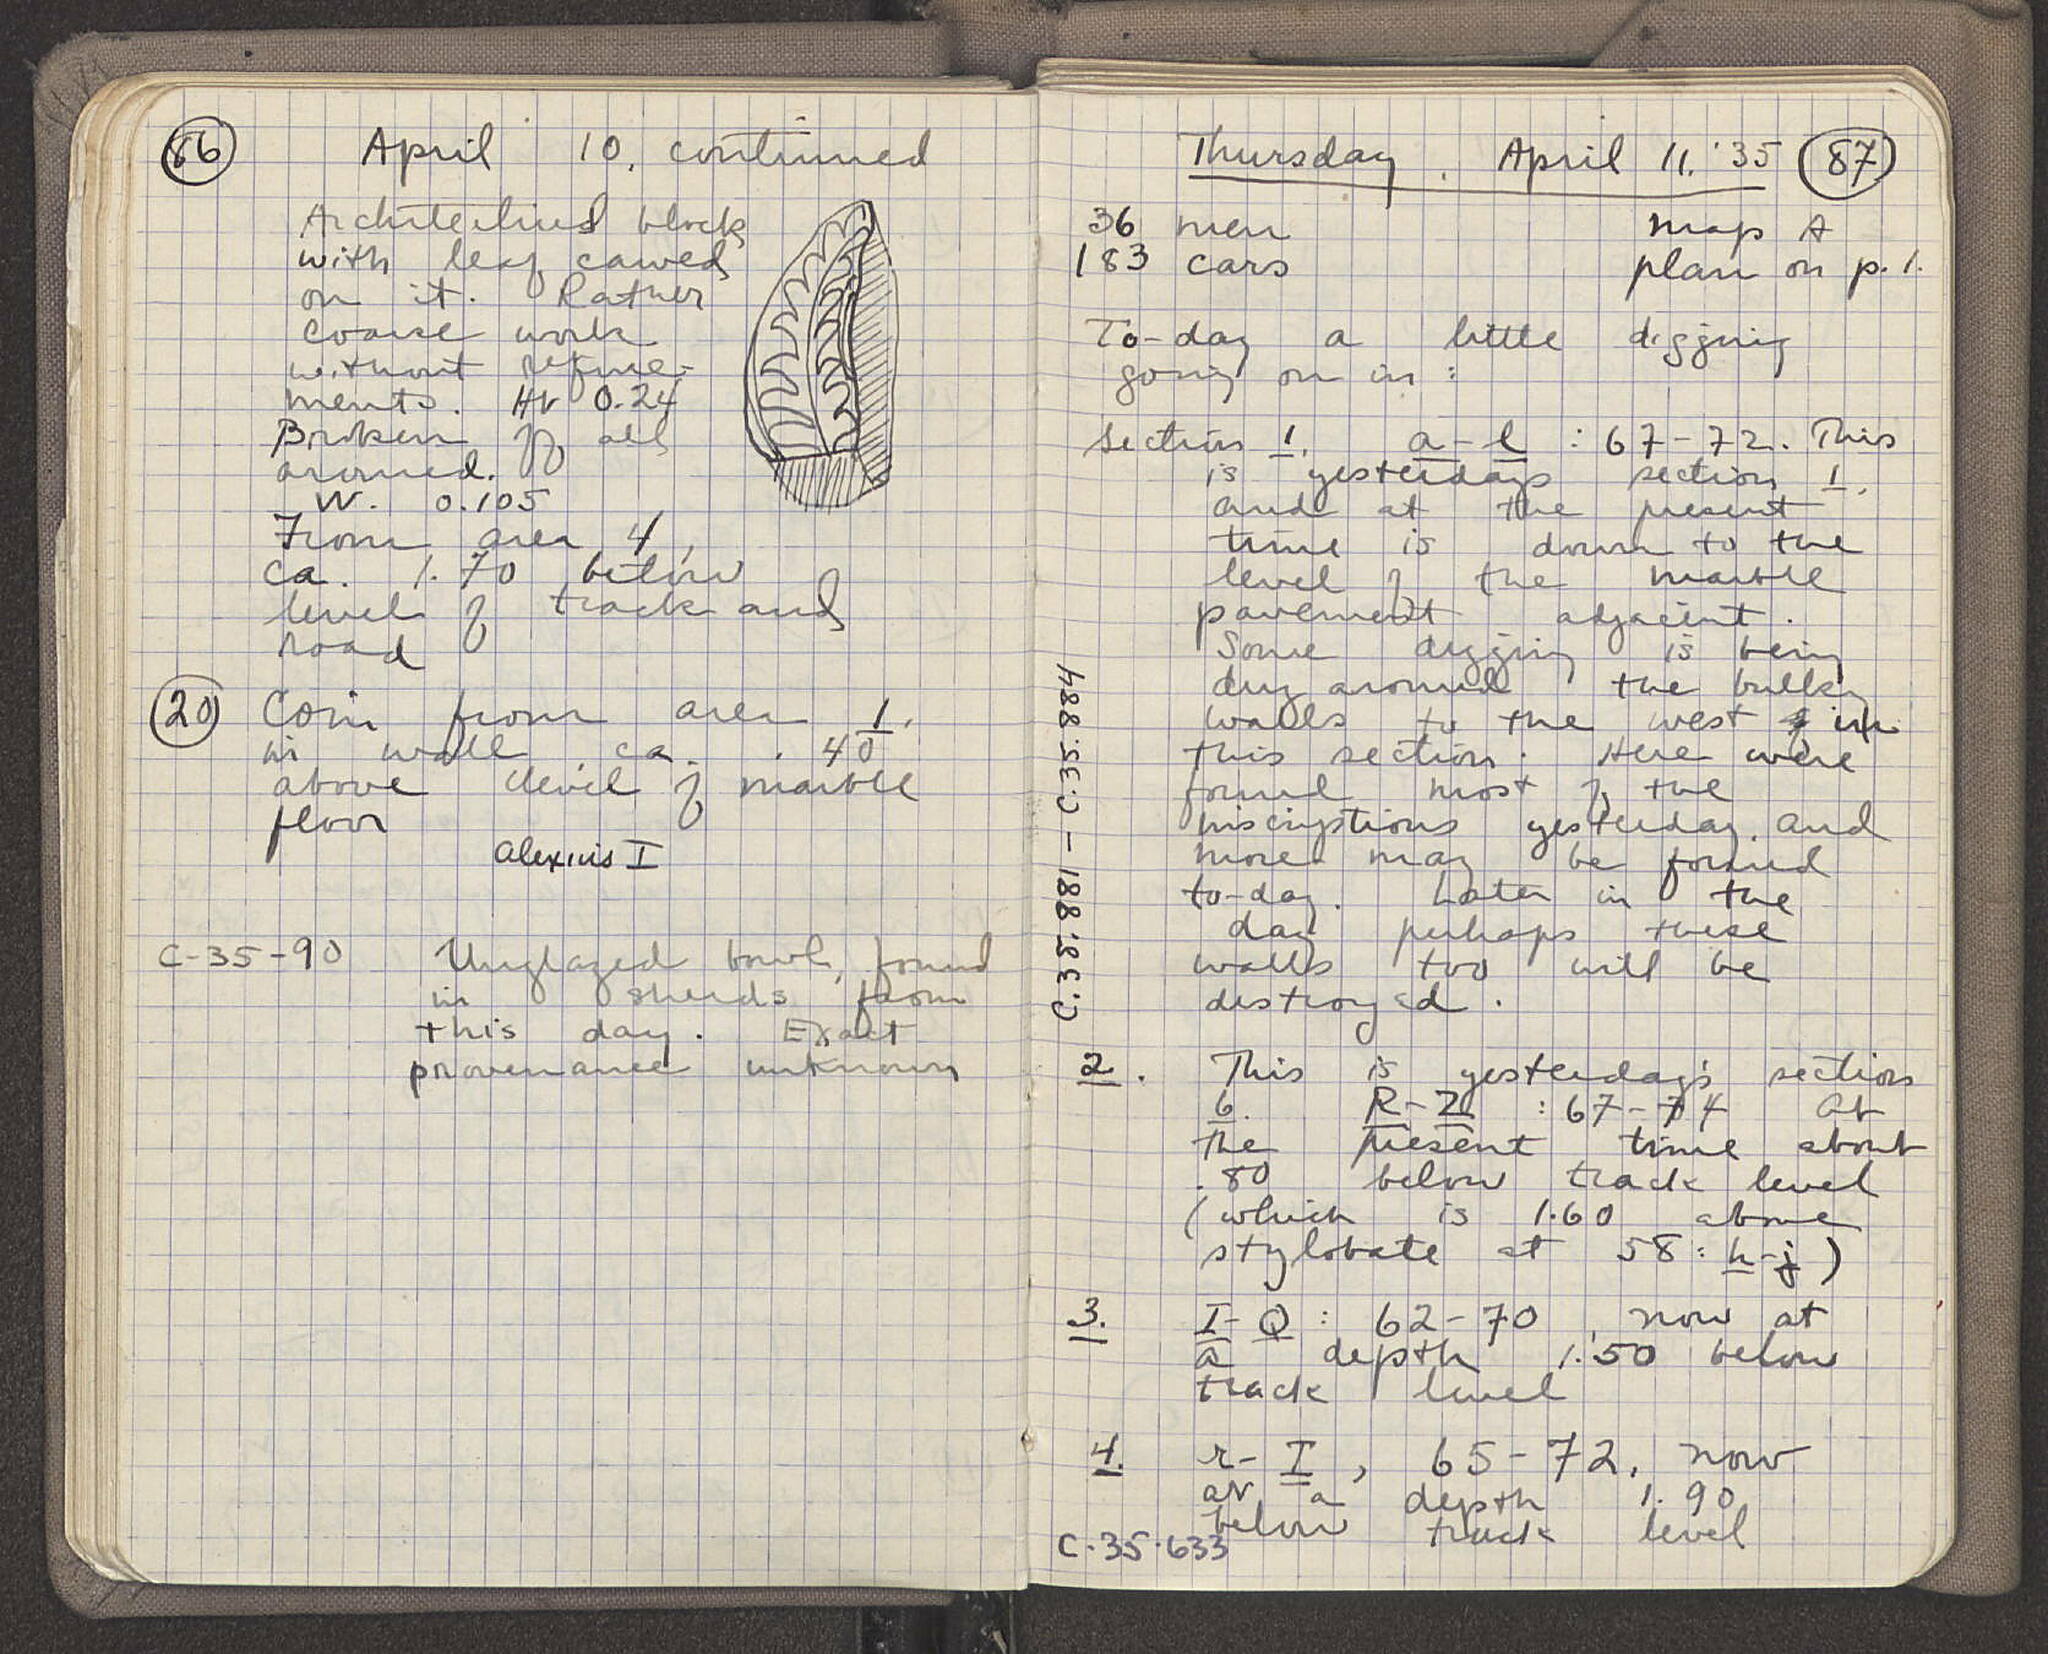 86
April 10, continued
Architectural block
with leaf carved
on it. Rather
coarse work
without refine-
ments. Ht 0.24
Broken off all
around.
W. 0.105
From area 4,
ca. 1.70 below
level of track and
road
20 Coin from area 1.
in wall ca. .40
above level of marble
floor
Alexius I
C-35-90 Unglazed bowl, found
in sherds from
this day. Exact
provenance unknown
Thursday, April 11, '35 87
36 men map A
183 cars plan on p. 1.
To-day a little digging
going on in:
Section 1. a-l : 67-72. This
is yesterdays section 1.
and at the present
time is down to the
level of the marble
pavement adjacent.
Some digging is being
dug around the bulky
walls to the west in
this section. Here were
found most of the
inscriptions yesterday and
more may be found
to-day. Later in the
day perhaps these
walls too will be
destroyed.
C.35.881 - C.35.884
2. This is yesterday's section
6. R-Z : 67-74 At
the present time about
.80 below track level
(which is 1.60 above
stylobate at 58: h-j)
3. I-Q: 62-70, now at
a depth 1.50 below
track level
4. r-I, 65-72, now
at a depth 1.90
below track level
C.35.633